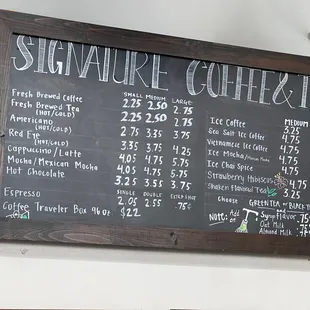 SIGNATURE COFFEE &
SMALL MEDIUM LARGE
Fresh Brewed Coffee 2.25 2.50 2.75
Fresh Brewed Tea
(HOT/COLD) 2.25 2.50 2.75
Americano
(HOT/COLD)
Red Eye 2.75 3.35 3.75
(HOT/COLD)
Cappuccino/Latte 4.05 4.75
Mocha/Mexican Mocha 4.05 4.75 5.75
Hot Chocolate 3.25 3.55 3.75
SINGLE DOUBLE EXTRA SHOT
Espresso 2.05 2.55 .75¢
Coffee Traveler Box 96oz $22
MEDIUM
Ice Coffee 3.25
Sea Salt Ice Coffee 4.75
Vietnamese Ice Coffee 4.75
Ice Mocha/Mexican Mocha 4.75
Ice Chai Spice 4.75
Strawberry Hibiscus 4.75
Shaken Flavored Tea
Choose GREEN TEA or BLACK
NOTE: Add
Syrup Flavor .75
Oat Milk
Almond Milk